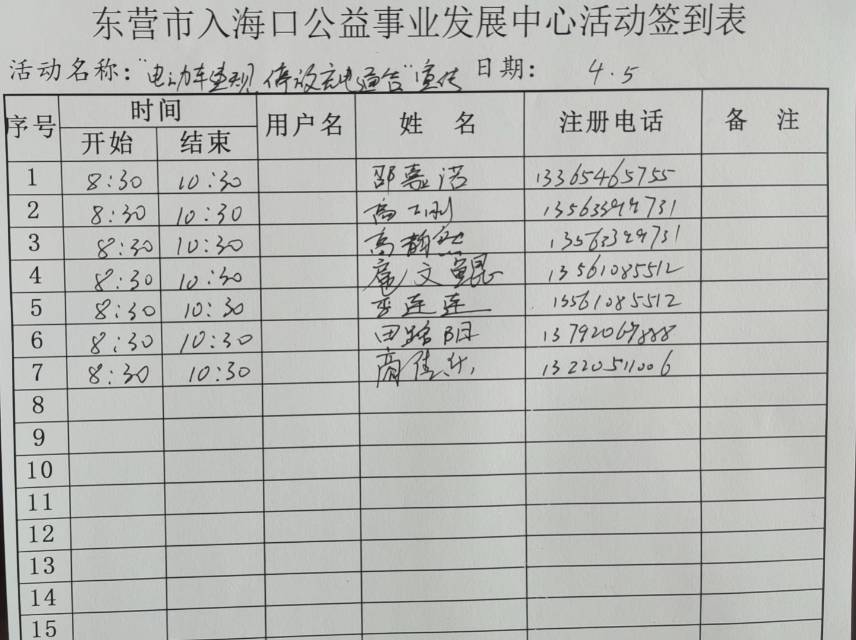 东营市入海口公益事业发展中心活动签到表
活动名称:"电动车违规停放充电通告"宣传 日期: 4.5
序号 时间 用户名 姓名 注册电话 备注
开始 结束
1 8:30 10:30 邵嘉诺 13365465755
2 8:30 10:30 高 刚
3 8:30 10:30 高静
4 8:30 10:30 文鲲 13561085512
5 8:30 10:30 李连连 13561085512
6 8:30 10:30 田路阳 13792067888
7 8:30 10:30 商佳 13220511006
8
9
10
11
12
13
14
15